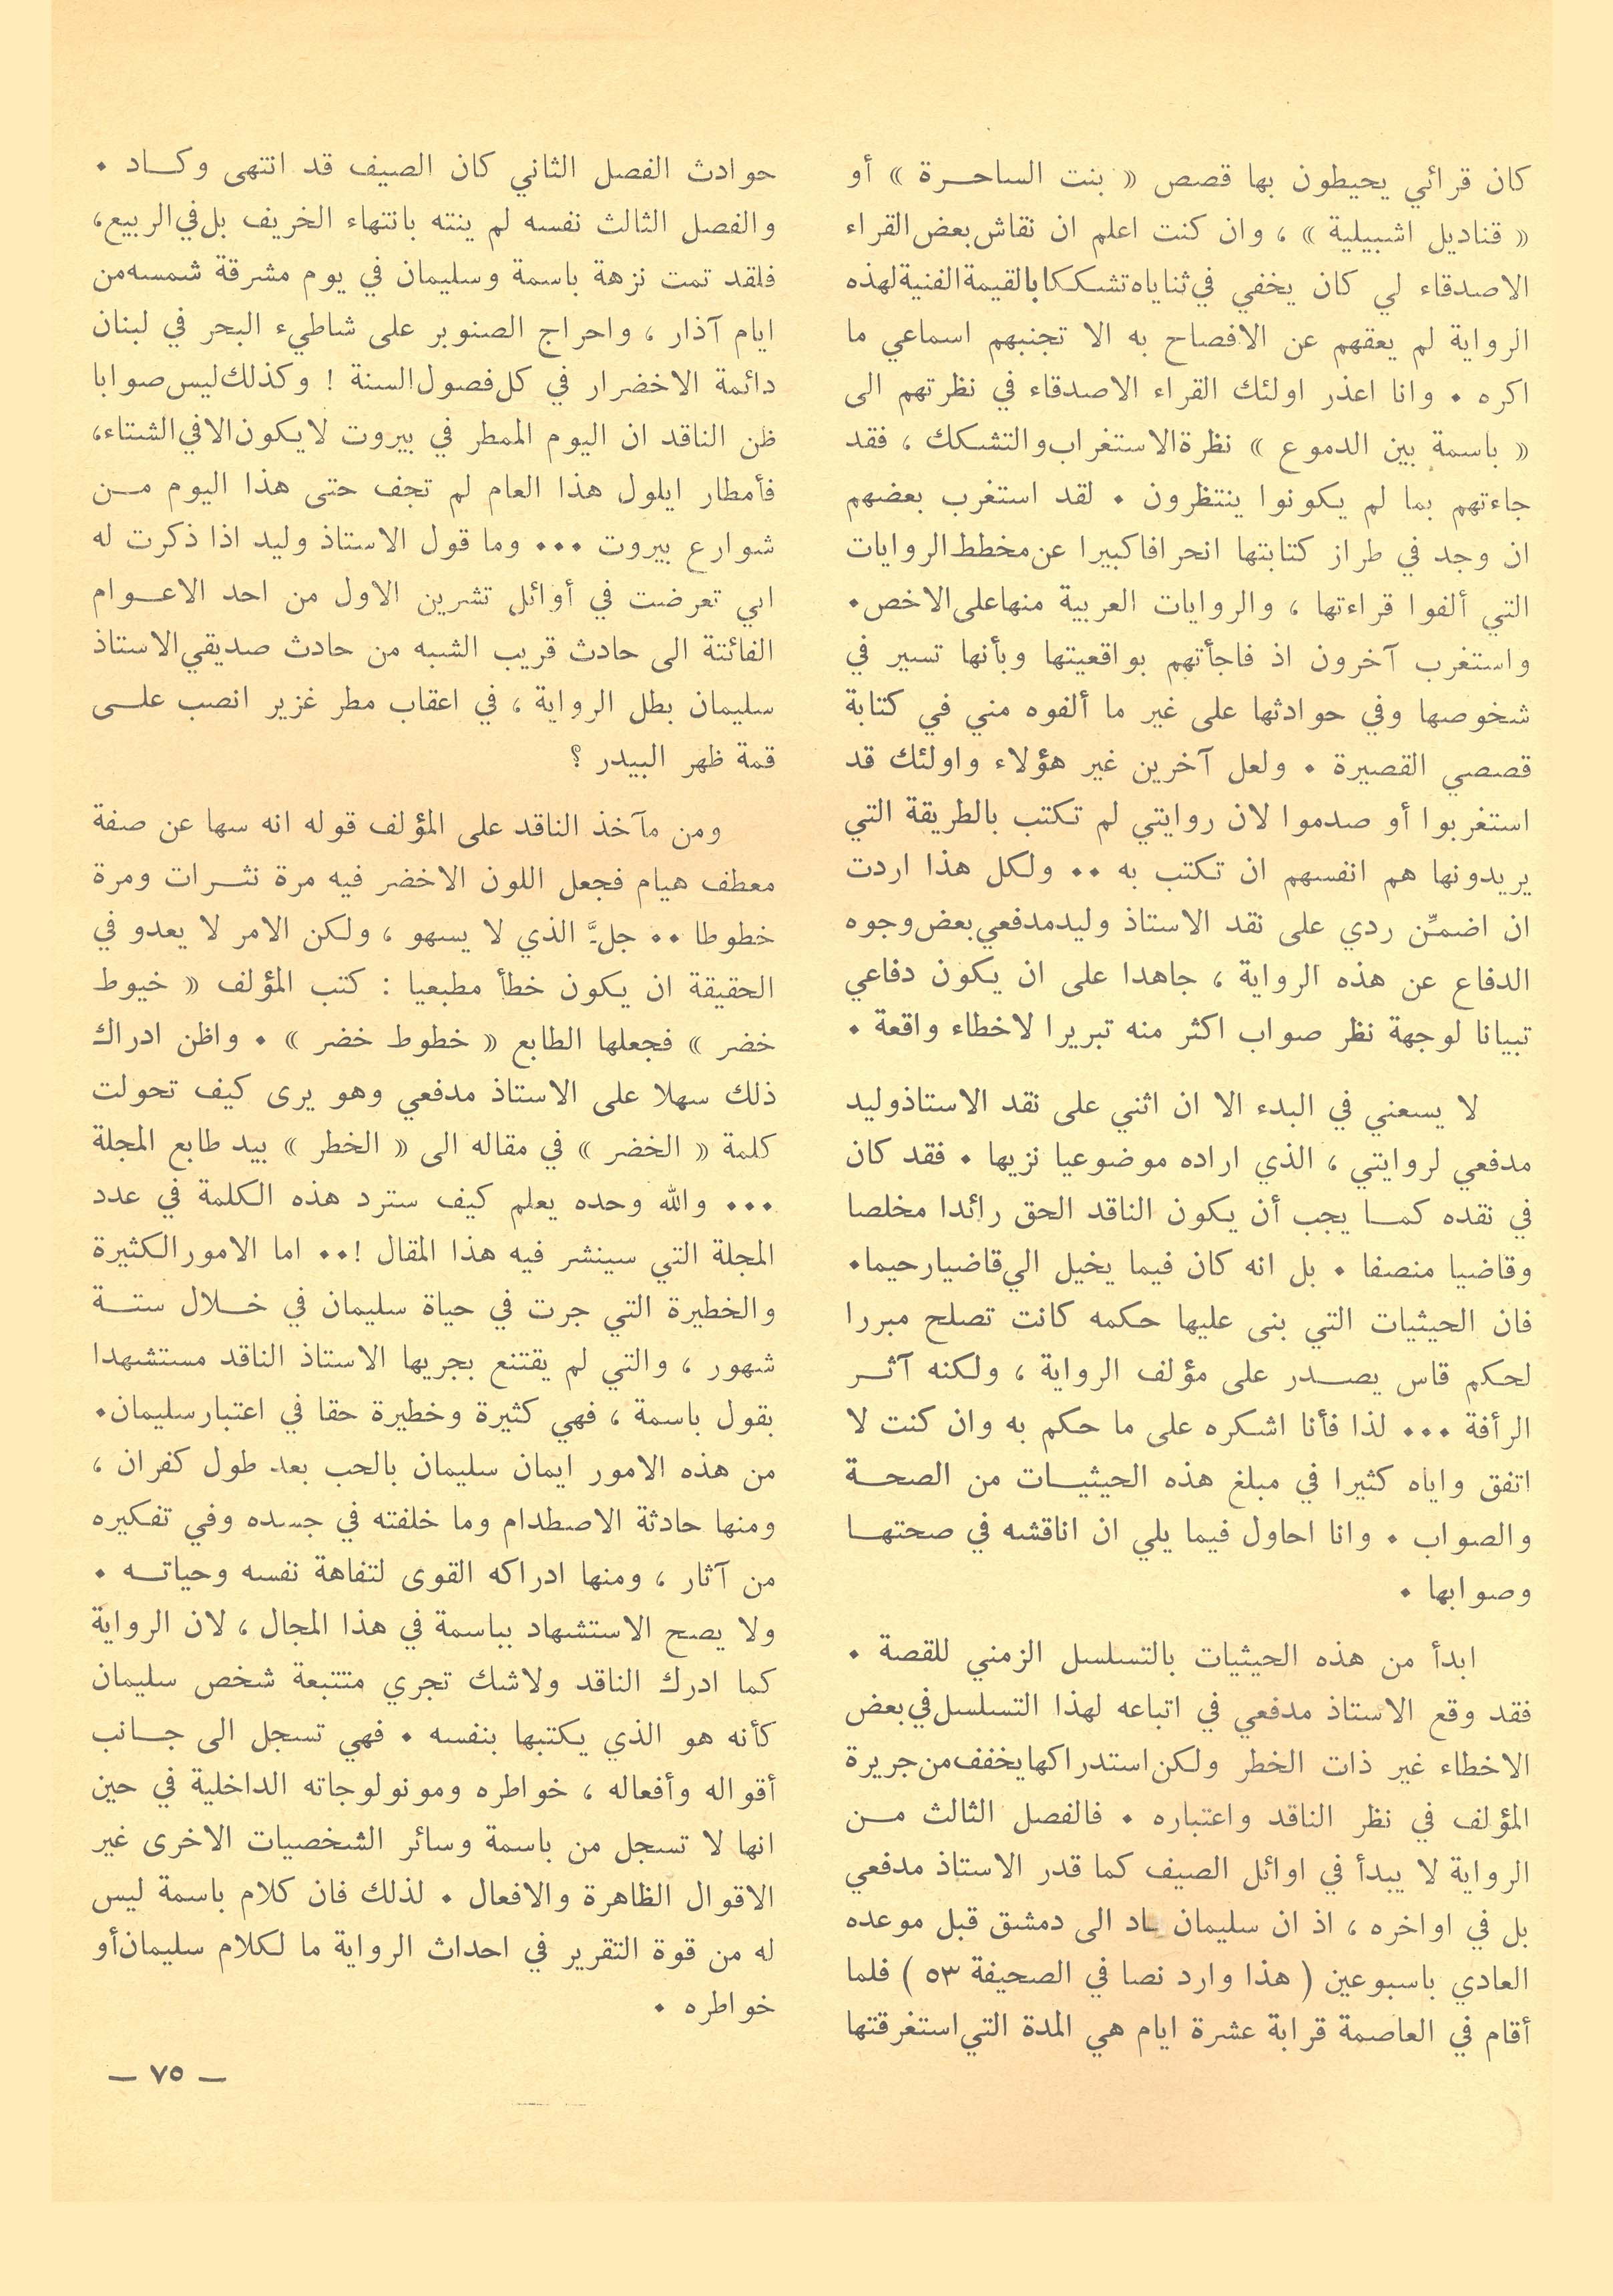 كان قرائي يحيطون بها قصص « بنت الساحرة » أو
« قناديل اشبيلية » ، وان كنت اعلم ان نقاش بعض القراء
الاصدقاء لي كان يخفي في ثناياه تشككا بالقيمة الفنية لهذه
الرواية لم يعقهم عن الافصاح به الا تجنبهم اسماعي ما
اكره . وانا اعذر اولئك القراء الاصدقاء في نظرتهم الى
« باسمة بين الدموع » نظرة الاستغراب والتشكك ، فقد
جاءتهم بما لم يكونوا ينتظرون . لقد استغرب بعضهم
ان وجد في طراز كتابتها انحرافا كبيرا عن مخطط الروايات
التي ألفوا قراءتها ، والروايات العربية منها على الاخص .
واستغرب آخرون اذ فاجأتهم بواقعيتها وبأنها تسير في
شخوصها وفي حوادثها على غير ما ألفوه مني في كتابة
قصصي القصيرة . ولعل آخرين غير هؤلاء واولئك قد
استغربوا أو صدموا لان روايتي لم تكتب بالطريقة التي
يريدونها هم انفسهم ان تكتب به .. ولكل هذا اردت
ان اضمّن ردي على نقد الاستاذ وليد مدفعي بعض وجوه
الدفاع عن هذه الرواية ، جاهدا على ان يكون دفاعي
تبيانا لوجهة نظر صواب اكثر منه تبريرا لاخطاء واقعة .
لا يسعني في البدء الا ان اثني على نقد الاستاذ وليد
مدفعي لروايتي ، الذي اراده موضوعيا نزيها . فقد كان
في نقده كما يجب أن يكون الناقد الحق رائدا مخلصا
وقاضيا منصفا . بل انه كان فيما يخيل الي قاضيا رحيما .
فان الحيثيات التي بنى عليها حكمه كانت تصلح مبررا
لحكم قاس يصدر على مؤلف الرواية ، ولكنه آثر
الرأفة ... لذا فأنا اشكره على ما حكم به وان كنت لا
اتفق واياه كثيرا في مبلغ هذه الحيثيات من الصحة
والصواب . وانا احاول فيما يلي ان اناقشه في صحتها
وصوابها .
ابدأ من هذه الحيثيات بالتسلسل الزمني للقصة .
فقد وقع الاستاذ مدفعي في اتباعه لهذا التسلسل في بعض
الاخطاء غير ذات الخطر ولكن استدراكها يخفف من جريرة
المؤلف في نظر الناقد واعتباره . فالفصل الثالث من
الرواية لا يبدأ في اوائل الصيف كما قدر الاستاذ مدفعي
بل في اواخره ، اذ ان سليمان اد الى دمشق قبل موعده
العادي باسبوعين ( هذا وارد نصا في الصحيفة ٥٣ ) فلما
أقام في العاصمة قرابة عشرة ايام هي المدة التي استغرقتها
حوادث الفصل الثاني كان الصيف قد انتهى وكاد .
والفصل الثالث نفسه لم ينته بانتهاء الخريف بل في الربيع ،
فلقد تمت نزهة باسمة وسليمان في يوم مشرقة شمسه من
ايام آذار ، واحراج الصنوبر على شاطيء البحر في لبنان
دائمة الاخضرار في كل فصول السنة ! وكذلك ليس صوابا
ظن الناقد ان اليوم الممطر في بيروت لا يكون الا في الشتاء ،
فأمطار ايلول هذا العام لم تجف حتى هذا اليوم من
شوارع بيروت ... وما قول الاستاذ وليد اذا ذكرت له
اني تعرضت في أوائل تشرين الاول من احد الاعوام
الفائتة الى حادث قريب الشبه من حادث صديقي الاستاذ
سليمان بطل الرواية ، في اعقاب مطر غزير انصب على
قمة ظهر البيدر ؟
ومن مآخذ الناقد على المؤلف قوله انه سها عن صفة
معطف هيام فجعل اللون الاخضر فيه مرة نثرات ومرة
خطوطا .. جلَّ الذي لا يسهو ، ولكن الامر لا يعدو في
الحقيقة ان يكون خطأ مطبعيا : كتب المؤلف « خيوط
خضر » فجعلها الطابع « خطوط خضر » . واظن ادراك
ذلك سهلا على الاستاذ مدفعي وهو يرى كيف تحولت
كلمة « الخضر » في مقاله الى « الخطر » بيد طابع المجلة
... والله وحده يعلم كيف سترد هذه الكلمة في عدد
المجلة التي سينشر فيه هذا المقال !.. اما الامور الكثيرة
والخطيرة التي جرت في حياة سليمان في خلال ستة
شهور ، والتي لم يقتنع بجريها الاستاذ الناقد مستشهدا
بقول باسمة ، فهي كثيرة وخطيرة حقا في اعتبار سليمان .
من هذه الامور ايمان سليمان بالحب بعد طول كفران ،
ومنها حادثة الاصطدام وما خلفته في جسده وفي تفكيره
من آثار ، ومنها ادراكه القوى لتفاهة نفسه وحياته .
ولا يصح الاستشهاد بباسمة في هذا المجال ، لان الرواية
كما ادرك الناقد ولاشك تجري متتبعة شخص سليمان
كأنه هو الذي يكتبها بنفسه . فهي تسجل الى جانب
أقواله وأفعاله ، خواطره ومونولوجاته الداخلية في حين
انها لا تسجل من باسمة وسائر الشخصيات الاخرى غير
الاقوال الظاهرة والافعال . لذلك فان كلام باسمة ليس
له من قوة التقرير في احداث الرواية ما لكلام سليمان أو
خواطره .
— ٧٥ —